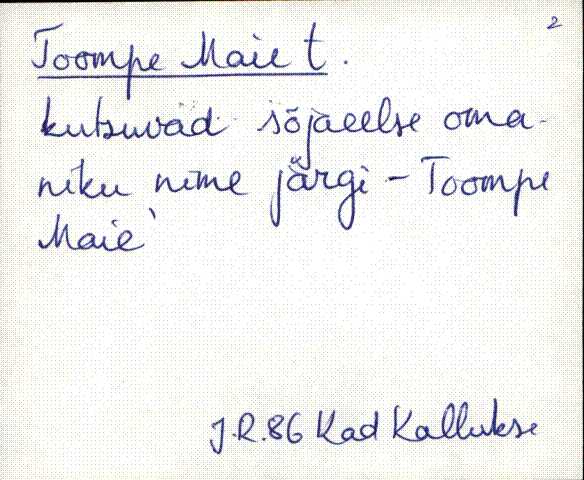 2
Toompe Maie t.
kutsuvad sõjaeelse oma-
niku nime järgi - Toompe
Maie
J.R. 86 Kad Kallukse